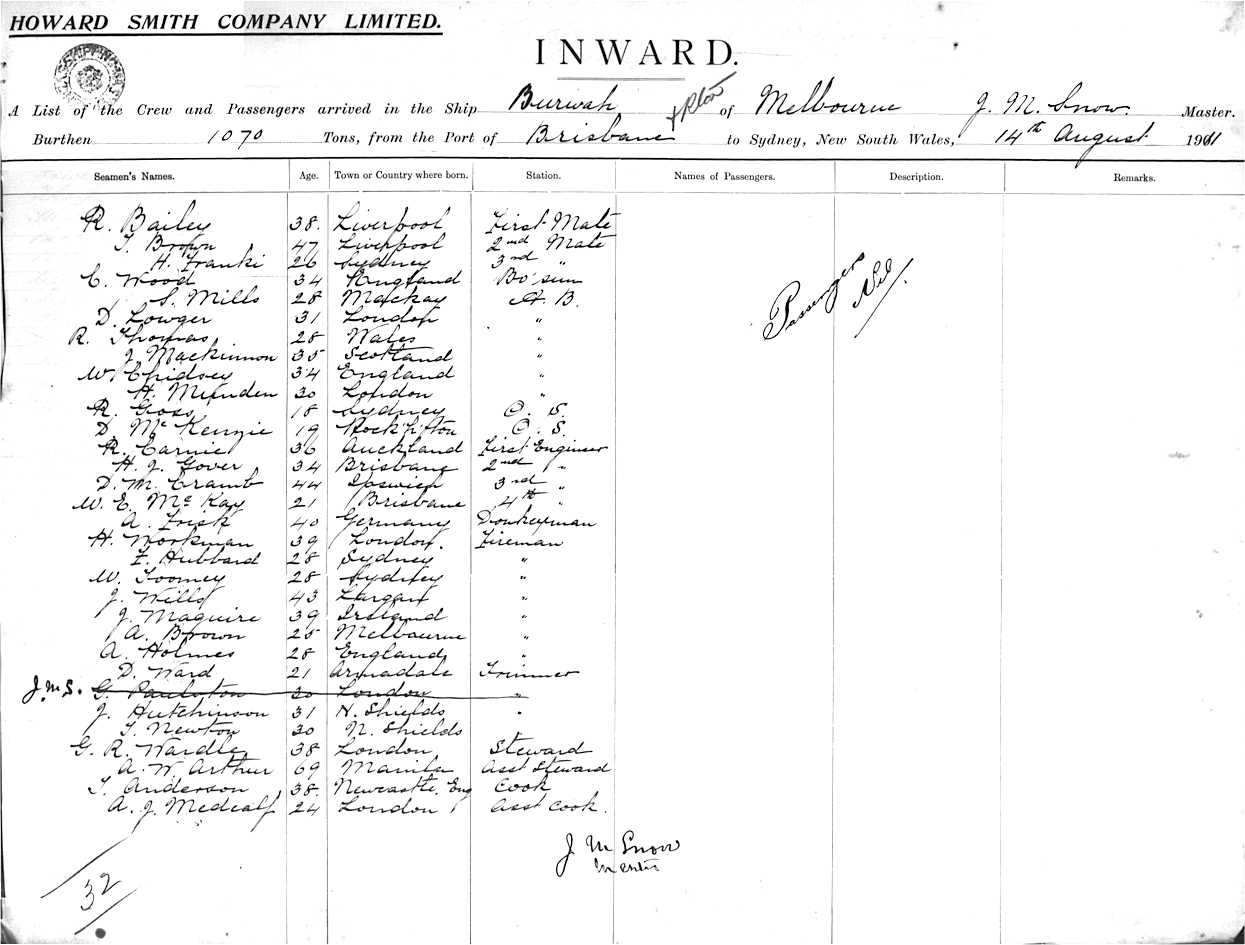 HOWARD SMITH COMPANY LIMITED.
INWARD.
A List of the Crew and Passengers arrived in the Ship Burwah of Melbourne J. M. Snow. Master.
Burthen 1070 Tons, from the Port of Brisbane to Sydney, New South Wales, 14th August 1911
Seamen's Names. Age. Town or Country where born. Station. Names of Passengers. Description. Remarks.
R. Bailey 38. Liverpool First Mate
T. Brown 47 Liverpool 2nd Mate
H. Franki 26 Sydney 3rd "
C. Wood 34 England Bo'sun
S. Mills 28 Mackay A. B.
D. Lowger 31 London "
R. Thomas 28 Wales "
J. Mackinnon 35 Scotland "
W. Chidsey 34 England "
H. Munden 30 London "
R. Goss 18 Sydney O. S.
D. McKenzie 19 Rock'h'ton O. S.
R. Carnie 36 Auckland First Engineer
H. J. Gover 34 Brisbane 2nd "
D. M. Cramb 44 Ipswich 3rd "
W. E. McKay 21 Brisbane 4th "
A. Frisk 40 Germany Donkeyman
H. Workman 39 London. Fireman
F. Hubbard 28 Sydney "
W. Toomey 28 Sydney "
J. Wills 43 Lurgan "
J. Maguire 39 Ireland "
A. Brown 25 Melbourne "
A. Holmes 28 England "
D. Ward 21 Armadale Trimmer
J. M. S. G. 30 London "
J. Hutchinson 31 N. Shields "
T. Newton 30 N. Shields
G. R. Wardle 38 London Steward
A. W. Arthur 69 Manila Asst Steward
T. Anderson 38. Newcastle, Eng Cook
A. J. Medcalf 24 London Asst Cook.
Passengers
Nil
J M Snow
Master
32